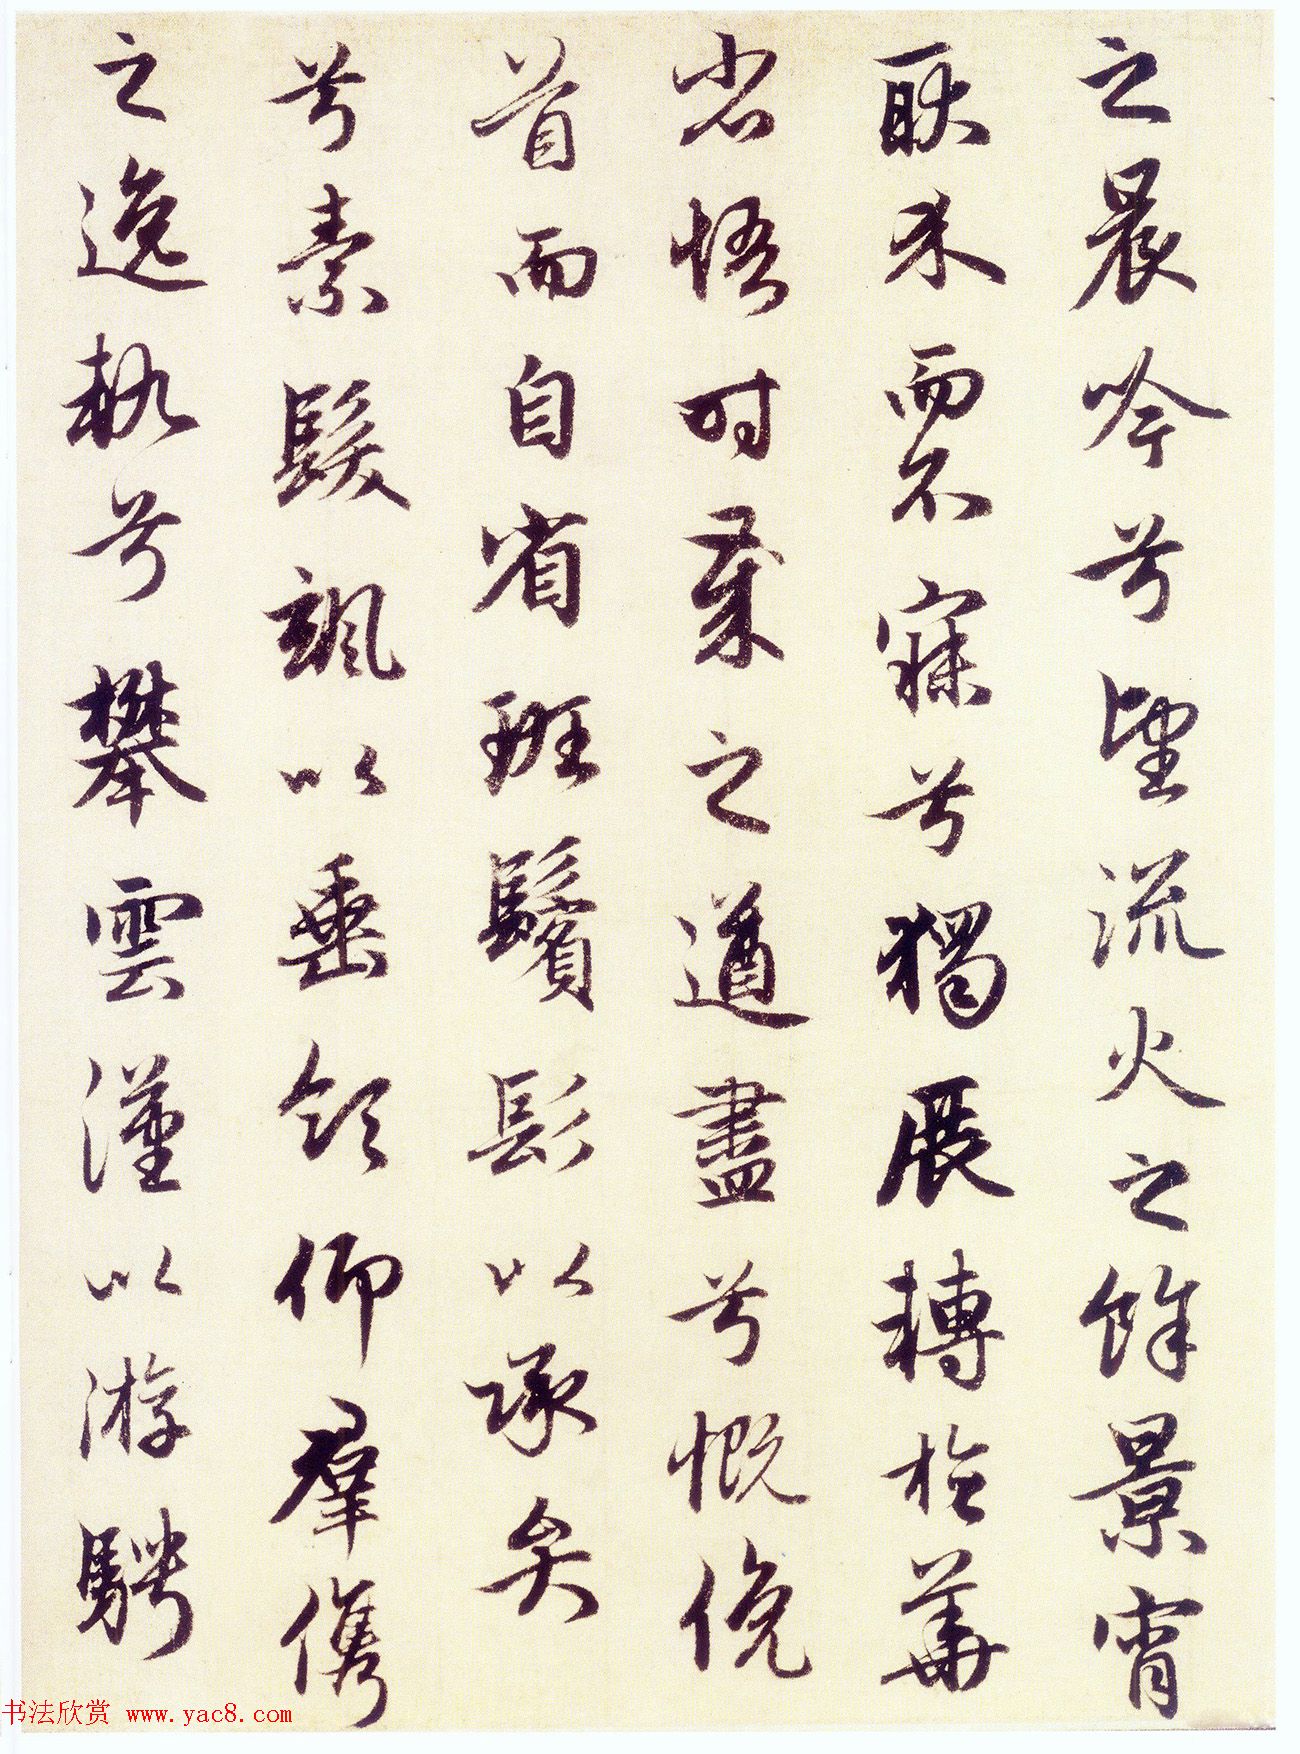 之晨吟兮望流火之餘景宵
耿介而不寐兮獨展轉於華
省悟時歲之遒盡兮慨俛
首而自省班鬢髟以承弁
兮素髮颯以垂領仰羣儁
之逸軌兮攀雲漢以游騁
书法欣赏 www.yac8.com